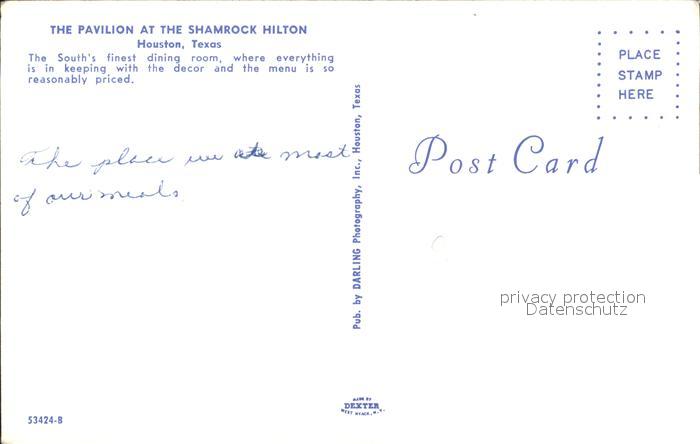 THE PAVILION AT THE SHAMROCK HILTON
Houston, Texas
The South's finest dining room, where everything
is in keeping with the decor and the menu is so
reasonably priced.
The place we ate most
of our meals
53424-B
Pub. by DARLING Photography, Inc., Houston, Texas
MADE BY
DEXTER
WEST NYACK, N.Y.
PLACE
STAMP
HERE
Post Card
privacy protection
Datenschutz